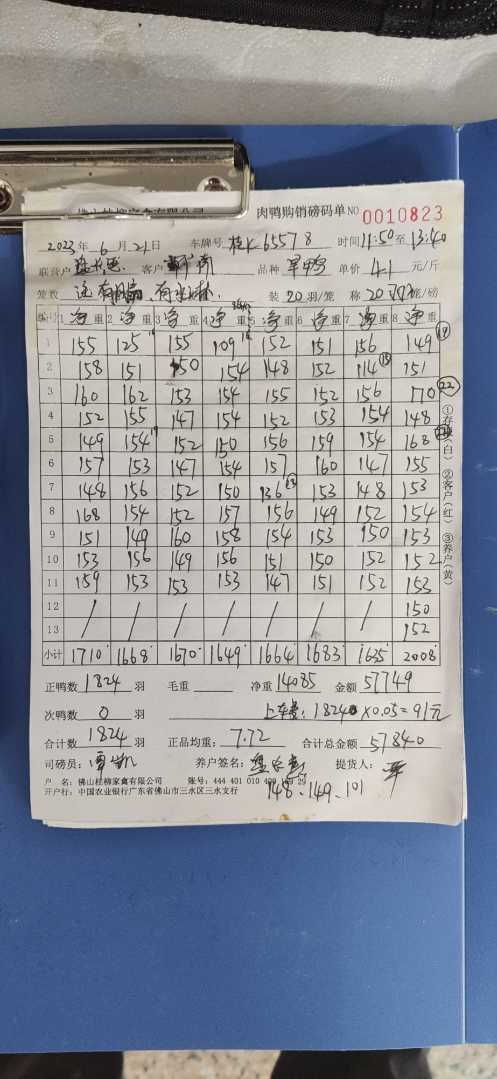 佛山桂柳家禽有限公司 肉鸭购销磅码单 NO 0010823
2023年 6月 21日 车牌号 桂K65578 时间 11:50 至 13:40
联营户 客户 品种 单价 4.1 元/斤
笼数 装 20 羽/笼 称 20 羽/笼/磅
编号 1 净重 2 净重 3 净重 4 净重 5 净重 6 净重 7 净重 8 净重
1 155 125 155 109 152 151 156 149 19
2 158 151 150 154 148 152 114 15 151
3 160 162 153 154 155 152 156 170 22
4 152 155 147 154 152 153 154 148
5 149 154 19 152 150 156 159 154 168
6 157 153 147 154 157 160 147 155
7 148 156 152 150 136 153 148 153
8 168 154 152 157 156 149 152 154
9 151 149 160 158 154 153 150 153
10 153 156 149 156 151 150 152 152
11 159 153 153 153 147 151 152 153
12 / / / / / / / 150
13 / / / / / / / 152
小计 1710 1668 1670 1649 1664 1683 1635 2008
①存(白) ②客户(红) ③养户(黄)
正鸭数 1824 羽 毛重 净重 14085 金额 57749
次鸭数 0 羽 上车费: 1824 ×0.05=91元
合计数 1824 羽 正品均重: 7.72 合计总金额 57840
司磅员: 养户签名: 提货人:
户 名: 佛山桂柳家禽有限公司 账号: 444 401 010 400 29
148、149、101
开户行: 中国农业银行广东省佛山市三水区三水支行